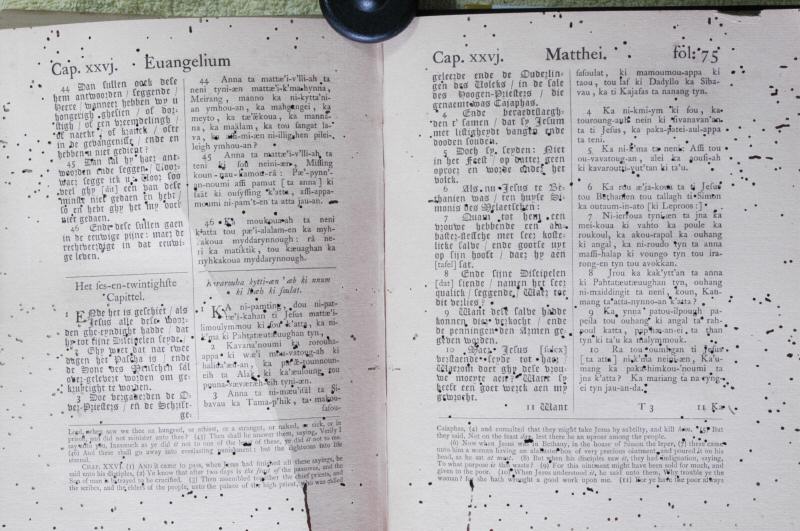 Cap. xxvj. Euangelium
44 Dan sullen oock dese
hem antwoorden / seggende /
Heere / wanneer hebben wy u
hongerigh gesien / of dor-
stigh / of een vreemdelingh /
of naeckt / of kranck / ofte
in de gevangenisse / ende en
hebben u niet gedient?
45 Dan sal hy haer ant-
woorden ende seggen, Voor-
waer segge ick u, Voor soo
veel ghy [dit] een van dese
minste niet gedaen en hebt /
so en hebt ghy het my oock
niet gedaen.
46 Ende dese sullen gaen
in de eeuwige pijne: maer de
rechtveerdige in dat eeuwi-
ge leven.
Het ses-en-twintighste
Capittel.
1 ENde het is geschiet / als
Jesus alle dese woor-
den ghe-eyndight hadde / dat
hy tot sijne Discipelen seyde:
2 Ghy weet dat nae twee
dagen het Pascha is / ende
de Sone des Menschen sal
over-gelevert worden om ge-
kruyćight te worden.
3 Doe vergaderden de O-
ver-Priesters / en de Schrift-
ge-
44 Anna ta mattæ'i-v'lli-ah ta
neni tyni-æn mattæ'i-k'ma-hynna,
Meirang, manno ka ni-kytta'ni-
an ymhou-an, ka mahgngei, ka
meyto, ka tæ'ækoua, ka manna-
na, ka maälam, ka tou sangat la-
va, ka ni-mi-æn ni-illighen pilei-
leigh ymhou-an?
45 Anna ta mattæ'i-v'lli-ah ta
teni ki sou neini-æn, Missing
koun-nau-kamou-rå: Pæ'-pynn'-
an-noumi affi pamut [ta anna] ki
faät ki oufyffing k'atta, affi-appa-
moumi ni-pam't-en ta atta jau-an.
46 Ka moukoua-ah ta neni
k'atta tou pæ'i-alalam-en ka myh-
akoua myddarynnough: rå ne-
ri ka matiktik, tou kæuaghan ka
nyhkakoua myddarynnough.
Kararouha kytti-æn 'æb ki nnum
ki ïtæb ki faulat.
1 KA ni-pamting, dou ni-pat-
tæ'i-kahan ti Jesus mattæ'i-
limoulymmou ki sou k'atta, ka ni-
k'ma ki Pahtatæutæuughan tyn,
2 Kavana'noumi ta rorouha-
appa ki wæ'i mau-vatoug-ah ki
haïits'æi-an, ka pa'æ-tounnoun-
eih ta Alak ki ka'æuloung tou
puuna-væværæh-eih tyni-æn.
3 Anna ta ni-mæu'ïtal ta Si-
bavau ka Tama-p'hik, ta makou-
fafou-
Lord, when saw we thee an hungred, or athirst, or a stranger, or naked, or sick, or in
prison, and did not minister unto thee? (45) Then shall he answer them, saying, Verily I
say unto you, Inasmuch as ye did it not to one of the least of these, ye did it not to me.
(46) And these shall go away into everlasting punishment: but the righteous into life
eternal.
CHAP. XXVI. (1) AND it came to pass, when Jesus had finished all these sayings, he
said unto his disciples, (2) Ye know that after two days is the feast of the passover, and the
Son of man is betrayed to be crucified. (3) Then assembled together the chief priests, and
the scribes, and the elders of the people, unto the palace of the high priest, who was called
Cap. xxvj. Matthei. fol: 75
geleerde ende de Ouderlin-
gen des Volcks / in de sale
des Hoogen-Priesters / die
genaemt was Cajaphas.
4 Ende beraedtslaegh-
den t' samen / dat sy Jesum
met listigheydt vangen ende
dooden souden.
5 Doch sy seyden: Niet
in het Feest / op datter geen
oproer en worde onder het
volck.
6 Als nu Jesus te Be-
thanien was / ten huyse Si-
monis des Melaetschen:
7 Quam tot hem een
vrouwe hebbende een ala-
baster-flessche met seer koste-
licke salve / ende gootse uyt
op sijn hooft / daer hy aen
[tafel] sat.
8 Ende sijne Discipelen
[dat] siende / namen het seer
qualick / seggende, Waer toe
dit verlies?
9 Want dese salve hadde
konnen dier verkocht / ende
de penningen den Armen ge-
geven worden.
10 Maer Jesus [sulcx]
verstaende seyde tot haer,
Waerom doet ghy dese vrou-
we moeyte aen? Want sy
heeft een goet werck aen my
gewrocht.
11 Want
fafoulat, ki mamoumou-appa ki
taou, tou faf ki Dadyllo ka Siba-
vau, ka ti Kajafas ta nanang tyn.
4 Ka ni-kmi-ym ki sou, ka
touroung-aul nein ki tivanavan'an
ta ti Jesus, ka paka-patei-aul-appa
ta teni.
5 Ka ni-k'ma ta nein: Affi tou
ou-vavatoug-an, alei ka poufi-ah
ki kavaroutti-vut'tan ki ta'u.
6 Ka rou æ'ia-koua ta ti Jesus
tou Bethanien tou tallagh ti Simon
ka outaum-in-ato [ki Leproos]:
7 Ni-irffoua tyni-æn ta jna ka
mei-koua ki vahto ka poule ka
roukoul, ka akou-rapol ka ouhang
ki angal, ka ni-roudo tyn ta anna
massi-halap ki voungo tyn tou ira-
rong-en tyn tou avokkan.
8 Jrou ka kak'ytt'an ta anna
ki Pahtatæutæuughan tyn, ouhang
ni-maisddingit ta neni, koun, Kan-
mang ta'atta-nynno-an k'atta?
9 Ka ynna patou-ilpough pa-
peila tou ouhang ki angal ta rah-
poul katta, paphou-an-ei, ta than
tyn ki ta'u ka malymmouk.
10 Ka tou-oumigan ti Jesus
[ta atta] ni-k'ma neini-æn, Ka'u-
mang ka pakuhimkou-'noumi ta
jna k'atta? Ka mariang ta na-ryng-
ei tyn jau-an-da.
T 3 11 Ka
Caiaphas, (4) and consulted that they might take Jesus by subtilty, and kill him. (5) But
they said, Not on the feast day, lest there be an uproar among the people.
(6) Now when Jesus was in Bethany, in the house of Simon the leper, (7) there came
unto him a woman having an alabaster box of very precious ointment, and poured it on his
head, as he sat at meat. (8) But when his disciples saw it, they had indignation, saying,
To what purpose is this waste? (9) For this ointment might have been sold for much, and
given to the poor. (10) When Jesus understood it, he said unto them, Why trouble ye the
woman? for she hath wrought a good work upon me. (11) For ye have the poor always